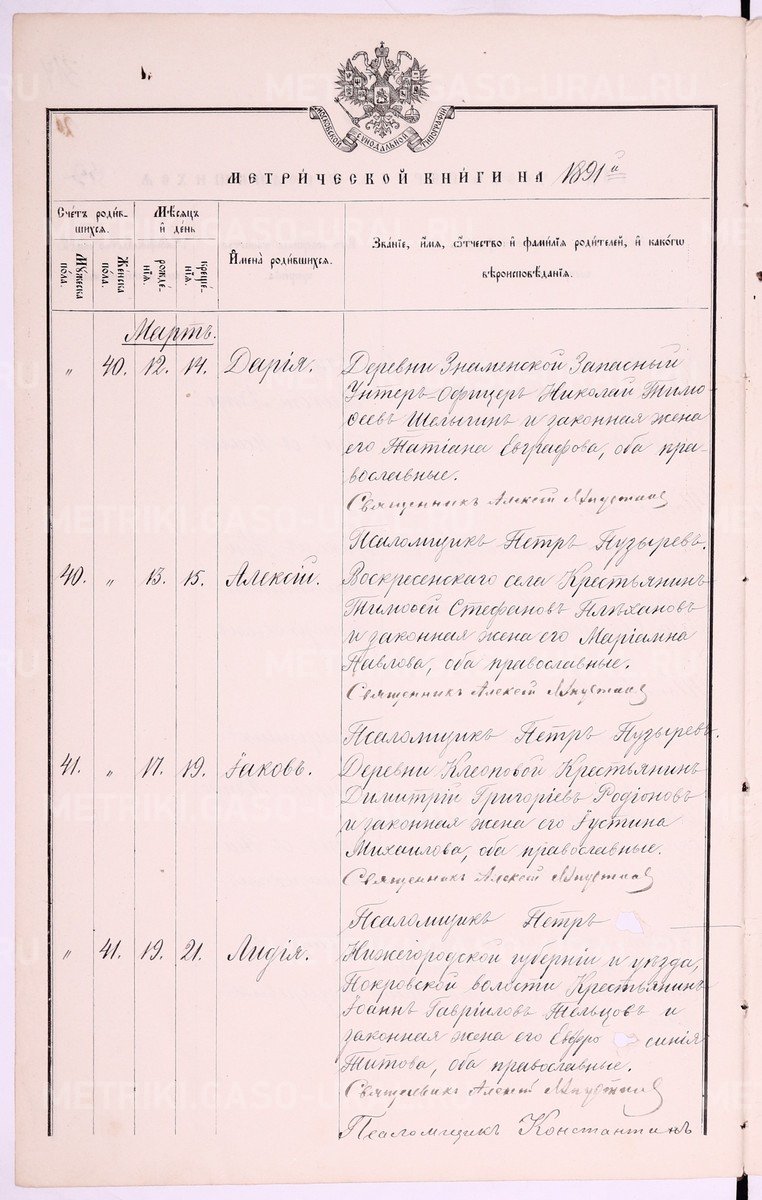 МОСКОВСКОЙ СѴНОДАЛЬНОЙ ТИПОГРАФІИ
МЕТРИ́ЧЕСКОЙ КНИ́ГИ НА 1891й
Сче́тъ роди́в-
шихся.
Мѣ́сяцъ
и҆ де́нь
И҆мена̀ роди́вшихся.
Зва́нїе, и҆́мя, ѻ҆́тчество и҆ фами́лїя роди́телей, и҆ како́гѡ
вѣроисповѣ́данїя.
Му́жеска
пола.
Же́нска
пола.
рожде́-
нїя.
креще́-
нїя.
Мартъ.
" 40. 12. 14. Дарія. Деревни Знаменской Запасный
Унтеръ-Офицеръ Николай Тимо-
ѳеевъ Шелыгинъ и законная жена
его Татіана Евграфова, оба пра-
вославные.
Священникъ Алексій
Псаломщикъ Петръ Пузыревъ.
40. " 13. 15. Алексій. Воскресенскаго села Крестьянинъ
Тимоѳей Стефановъ Плѣхановъ
и законная жена его Маріамна
Павлова, оба православные.
Священникъ Алексій
Псаломщикъ Петръ Пузыревъ.
41. " 17. 19. Іаковъ. Деревни Клеоповой Крестьянинъ
Димитрій Григоріевъ Родіоновъ
и законная жена его Іустина
Михаилова, оба православные.
Священникъ Алексій
Псаломщикъ Петръ
" 41. 19. 21. Лидія. Нижегородской губерніи и уѣзда,
Покровской волости Крестьянинъ
Іоаннъ Гавріиловъ Тельцовъ и
законная жена его Евфро синія
Титова, оба православные.
Священникъ Алексій
Псаломщикъ Константинъ